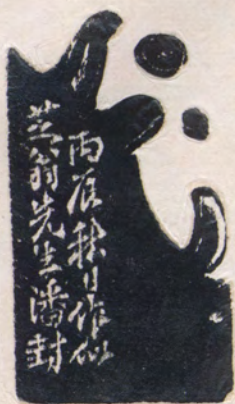 丙辰秋日作似
芝翁先生潘封